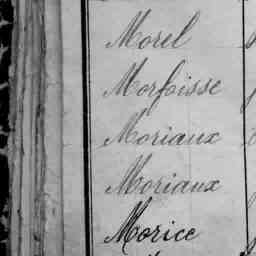 Morel
Morfoisse
Moriaux
Moriaux
Morice